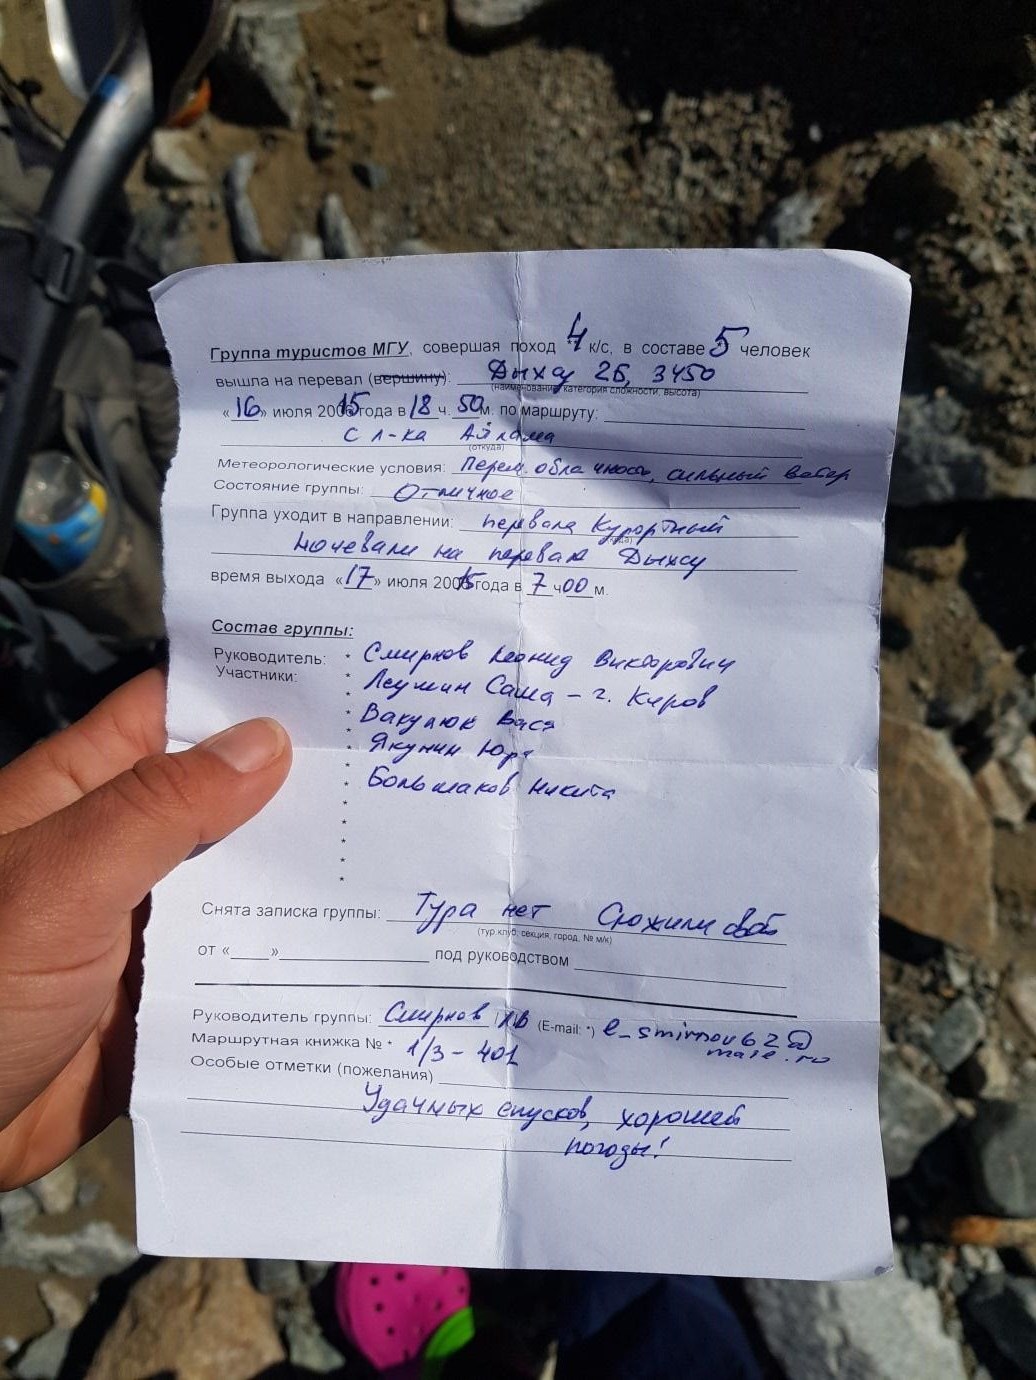 Группа туристов МГУ, совершая поход 4 к/с, в составе 5 человек
вышла на перевал (вершину): Дыхсу 2Б, 3450
(наименование, категория сложности, высота)
«16» июля 2015 года в 18 ч. 50 м. по маршруту:
с л-ка Айлама
(откуда)
Метеорологические условия: Перем. облачность, сильный ветер
Состояние группы: Отличное
Группа уходит в направлении: перевала Курортный
(куда)
Ночевали на перевале Дыхсу
время выхода «17» июля 2015 года в 7 ч 00 м.
Состав группы:
Руководитель: * Смирнов Леонид Викторович
Участники: * Леушин Саша – г. Киров
* Вакулюк Вася
* Якунин Юра
* Большаков Никита
*
*
*
*
*
Снята записка группы: Тура нет Сложили свой
(тур.клуб, секция, город, № м/к)
от «____»____________ под руководством
Руководитель группы: Смирнов ЛВ (E-mail: *) l_smirnov62@
mail.ru
Маршрутная книжка № * 1/3-401
Особые отметки (пожелания)
Удачных спусков, хорошей
погоды!